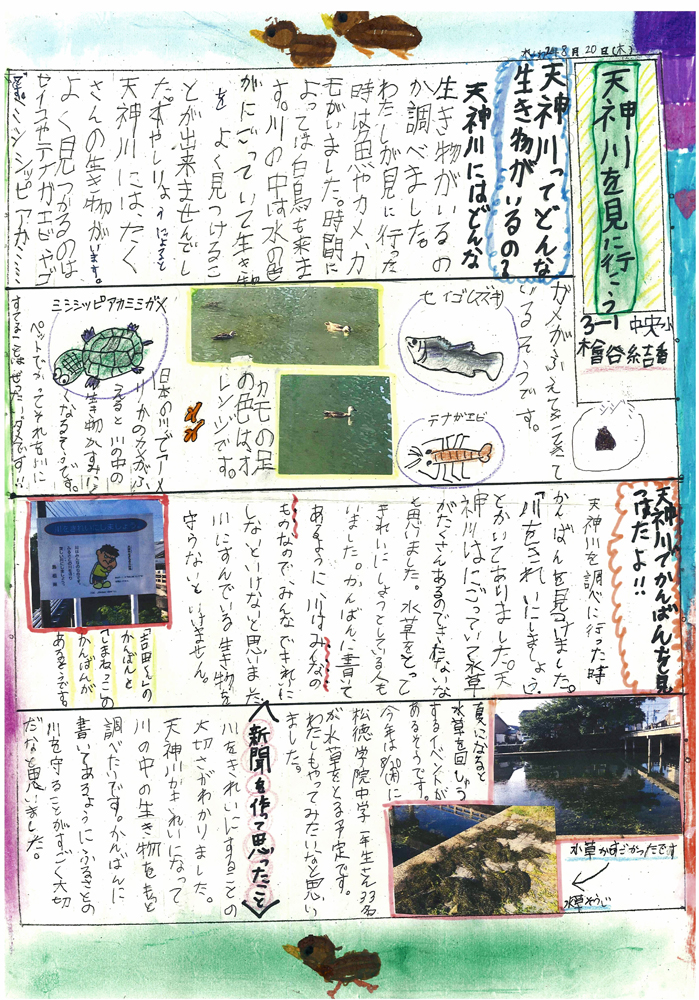 8月20日(木)
天神川を見に行こう
3-1 中央小
天神川ってどんな
生き物がいるの?
天神川にはどんな
生き物がいるの
か調べました。
わたしが見に行った
時は魚やカメ、カ
モがいました。時間に
よっては白鳥も来ま
す。川の中は水の色
がにごっていて生き物
をよく見つけるこ
とが出来ませんでし
た。
天神川にはたく
さんの生き物がいます。
よく見つかるのは
セイゴやテナガエビやゴ
ミシシッピアカミミ
ガメがふえてきて
いるそうです。
シジミ
セイゴ(スズキ)
テナガエビ
カモの足
の色は、オ
レンジです。
ミシシッピアカミミガメ
日本の川でアメ
リカのカメがふ
えると川の中の
生き物がすみにく
くなるそうです。
すてることはぜったいダメです!!
天神川でかんばんを見
つけたよ!!
天神川を調べに行った時
かんばんを見つけました。
「川をきれいにしましょう。」
とかいてありました。天
神川はにごっていて水草
がたくさんあるのできたないな
と思いました。水草をとって
きれいにしようとしている人も
いました。かんばんに書いて
あるように、川はみんなの
ものなので、みんなできれいに
しないといけないと思いました。
川にすんでいる生き物を
守らないといけません。
「吉田くん」の
かんばんと
「しまねっこ」の
かんばんが
あるそうです。
夏になると
水草を回しゅう
するイベントが
あるそうです。
今年は8/20(木)に
松徳学院中学一年生さん33名
が水草をとる予定です。
わたしもやってみたいなと思い
ました。
水草がすごかったです
水草そうじ
新聞を作って思ったこと
川をきれいにすることの
大切さがわかりました。
天神川がきれいになって
川の中の生き物をもっと
調べたいです。かんばんに
書いてあるようにふるさとの
川を守ることがすごく大切
だなと思いました。